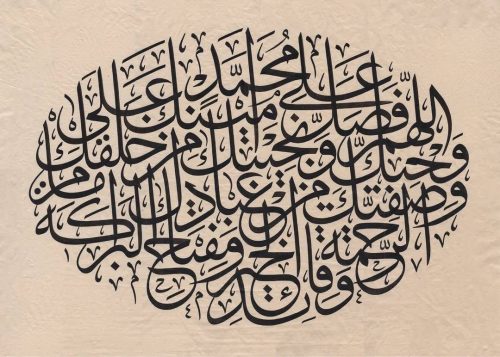 اللهم فصل على محمد امينك على
وحيك ونجيبك من خلقك
وصفيك من عبادك امام
الرحمة وقائد الخير ومفتاح البركة